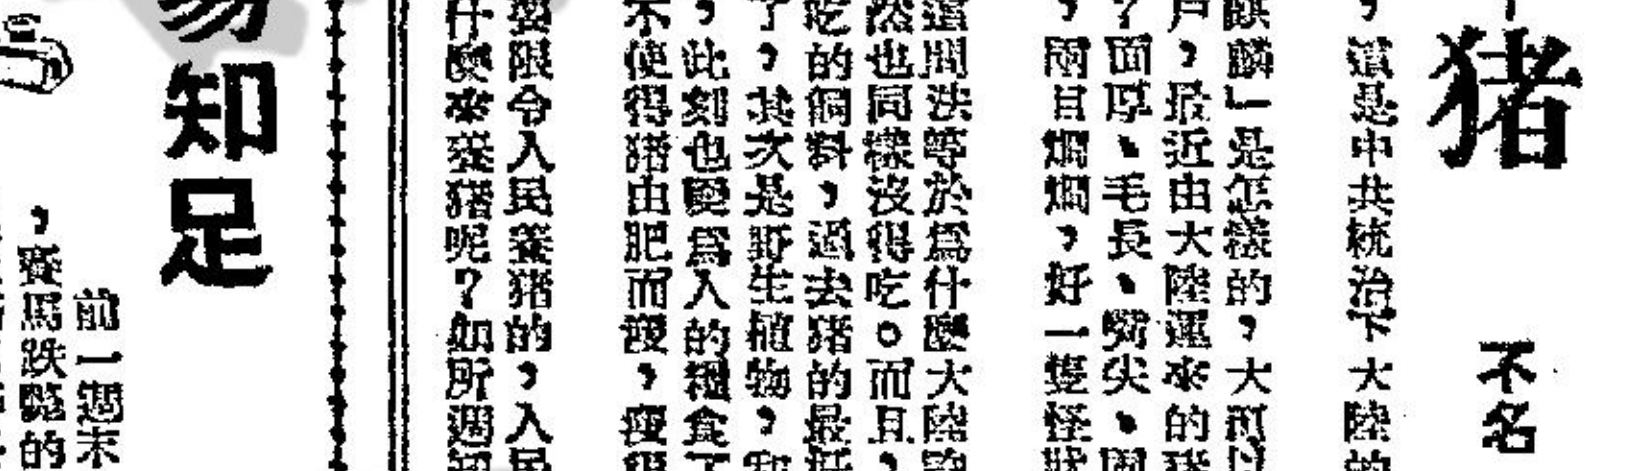 猪
不名
，這是中共統治下大陸的
麒麟」是怎樣的，大可以
戶，最近由大陸運來的猪
？面厚、毛長、嘴尖、
，兩目烱烱，好一隻怪
這問法等於爲什麼大陸
然也同樣沒得吃。而且，
吃的飼料，過去猪的最好
了，其次是野生植物，和
，此刻也變爲人的糧食了
不使得猪由肥而瘦，瘦得
要限令人民養猪的，人民
什麼來養猪呢？如所週知
易知足
前一週末
，賽馬跌斃的